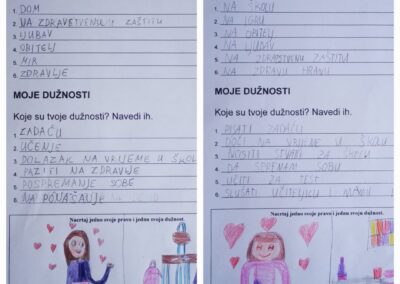 1. DOM
2. NA ZDRAVSTVENU ZAŠTITU
3. LJUBAV
4. OBITELJ
5. MIR
6. ZDRAVLJE
MOJE DUŽNOSTI
Koje su tvoje dužnosti? Navedi ih.
1. ZADAĆU
2. UČENJE
3. DOLAZAK NA VRIJEME U ŠKOL
4. PAZITI NA ZDRAVLJE
5. POSPREMANJE SOBE
6. NA PONAŠANJE
Nacrtaj jedno svoje pravo i jednu svoju dužnost.
1. NA ŠKOLU
2. NA IGRU
3. NA OBITELJ
4. NA LJUBAV
5. NA ZDRAVSTVENU ZAŠTITU
6. NA ZDRAVU HRANU
MOJE DUŽNOSTI
Koje su tvoje dužnosti? Navedi ih.
1. PISATI ZADAĆU
2. DOĆI NA VRIJEME U ŠKOLU
3. NOSITI STVARI ZA ŠKOLU
4. DA SPREMAM SOBU
5. UČITI ZA TEST
6. SLUŠATI UČITELJICU I MAMU
Nacrtaj jedno svoje pravo i jednu svoju dužnost.